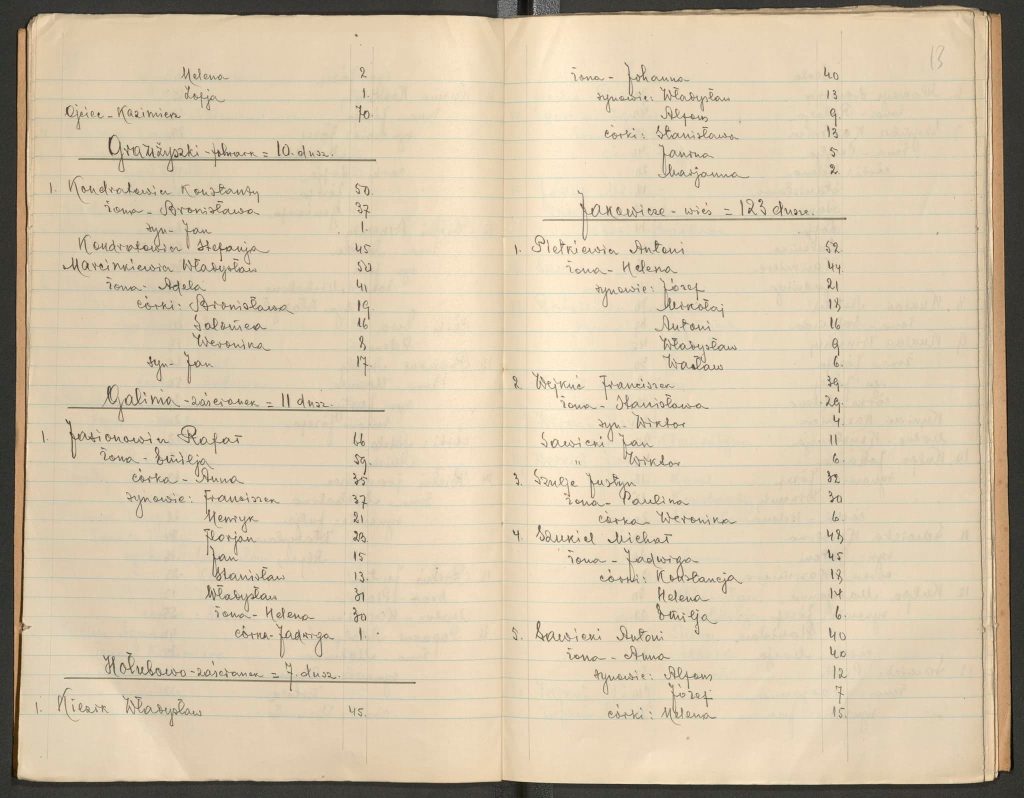 Helena 2
Zofja 1.
Ojciec - Kazimierz 70.
Grażżyszki - folwark = 10. dusz.
1. Kondratowicz Konstanty 50.
żona - Bronisława 37
syn - Jan 1.
Kondratowicz Stefanja 45
Marcinkiewicz Władysław 50
żona - Adela 41
córki: Bronisława 19
Salomea 16
Weronika 8
syn - Jan 17.
Galinia - zaścianek = 11 dusz.
1. Jasionowicz Rafał 66
żona - Emilja 59.
córka - Anna 35
synowie: Franciszek 37
Henryk 21
Florjan 23.
Jan 15
Stanisław 13.
Władysław 31
żona - Helena 30
córka - Jadwiga 1.
Hołubowo - zaścianek = 7. dusz.
1. Kiezik Władysław 45.
13
żona - Johanna 40
synowie: Władysław 13
Alfons 9.
córki: Stanisława 13
Janina 5
Marjanna 2.
Jakowicze - wieś = 123 dusze.
1. Pietkiewicz Antoni 52
żona - Helena 44.
synowie: Józef 21
Mikołaj 18
Antoni 16
Władysław 9
Wacław 6.
2. Wejkuć Franciszek 39.
żona - Stanisława 29.
syn - Wiktor 4.
Sawicki Jan 11
" Wiktor 6.
3. Szulje Justyn 32
żona - Paulina 30
córka - Weronika 6.
4. Szukiel Michał 48,
żona - Jadwiga 45
córki: Konstancja 18,
Helena 14
Emilja 6.
5. Sawicki Antoni 40
żona - Anna 40
synowie: Alfons 12
Józef 7
córki: Helena 15.